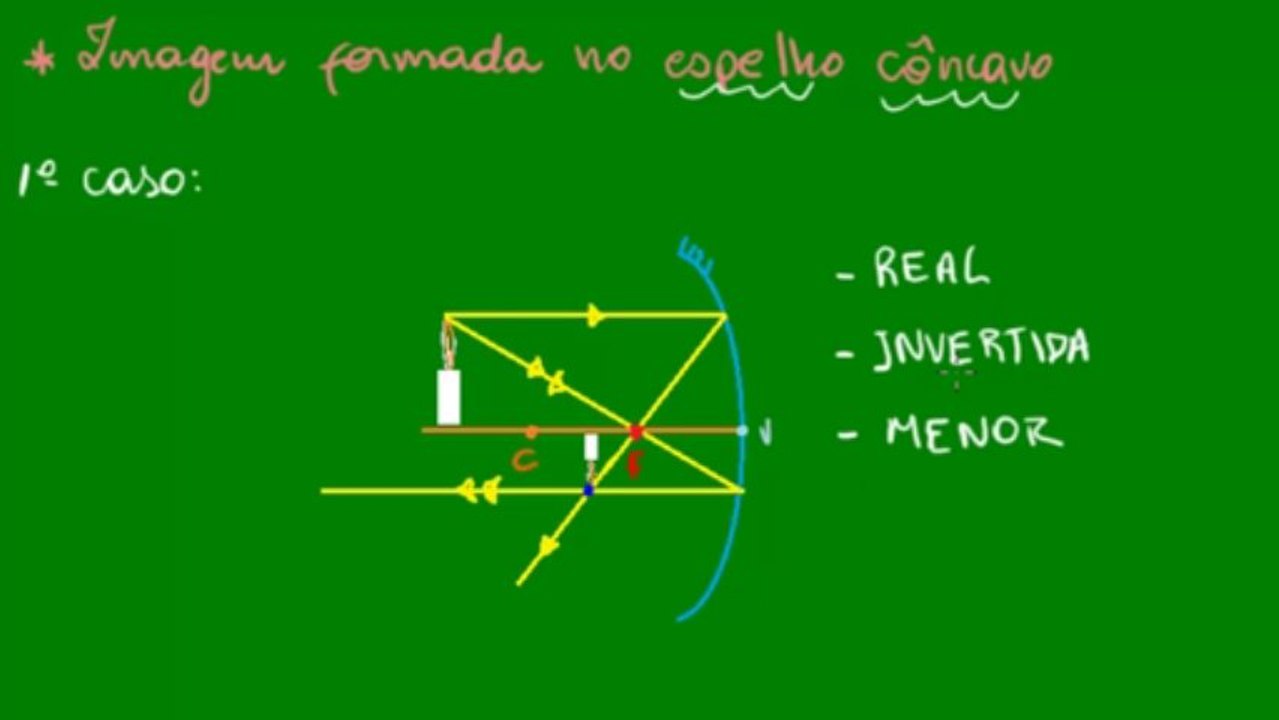 * Imagem formada no espelho côncavo
1º caso:
E
- REAL
- INVERTIDA
C
F
V
- MENOR